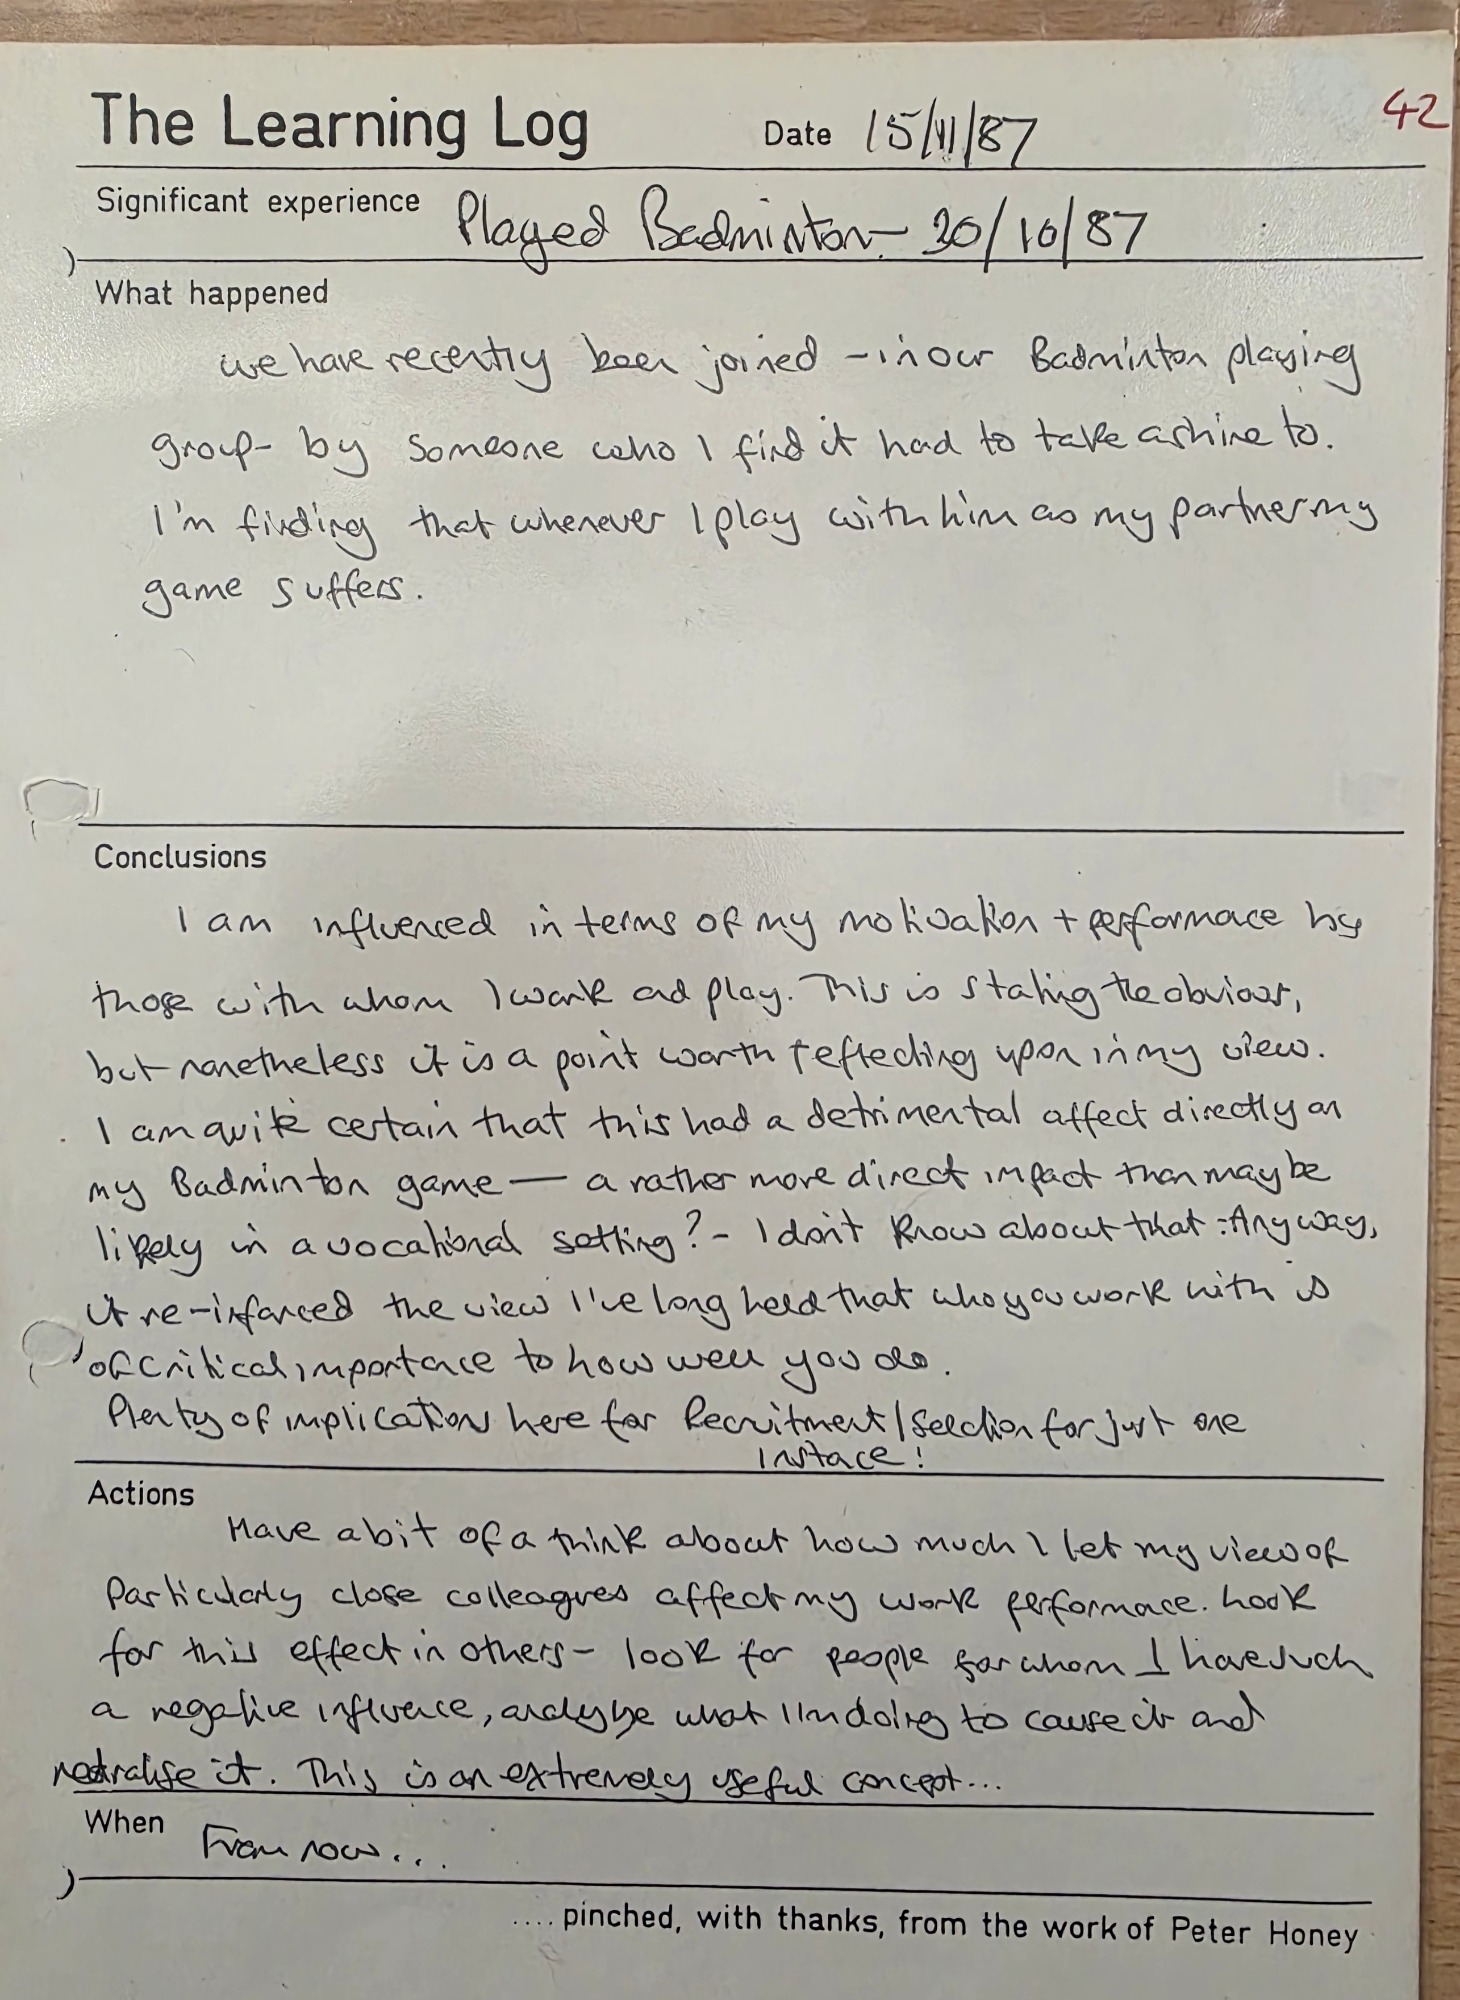 42
The Learning Log Date 15/11/87
Significant experience Played Badminton - 30/10/87
What happened
we have recently been joined - in our Badminton playing
group - by someone who I find it had to take a shine to.
I'm finding that whenever I play with him as my partner my
game suffers.
Conclusions
I am influenced in terms of my motivation + performace by
those with whom I work and play. This is stating the obvious,
but nonetheless it is a point worth reflecting upon in my view.
I am quite certain that this had a detrimental affect directly on
my Badminton game — a rather more direct impact than may be
likely in a vocational setting? - I don't know about that. Anyway,
it re-inforced the view I've long held that who you work with is
of critical importance to how well you do.
Plenty of implications here for Recruitment/Selection for just one
instace!
Actions
Have a bit of a think about how much I let my view of
particularly close colleagues affect my work performace. Look
for this effect in others - look for people for whom I have such
a negative influence, analyse what I'm doing to cause it and
neutralise it. This is an extremely useful concept...
When From now...
.... pinched, with thanks, from the work of Peter Honey